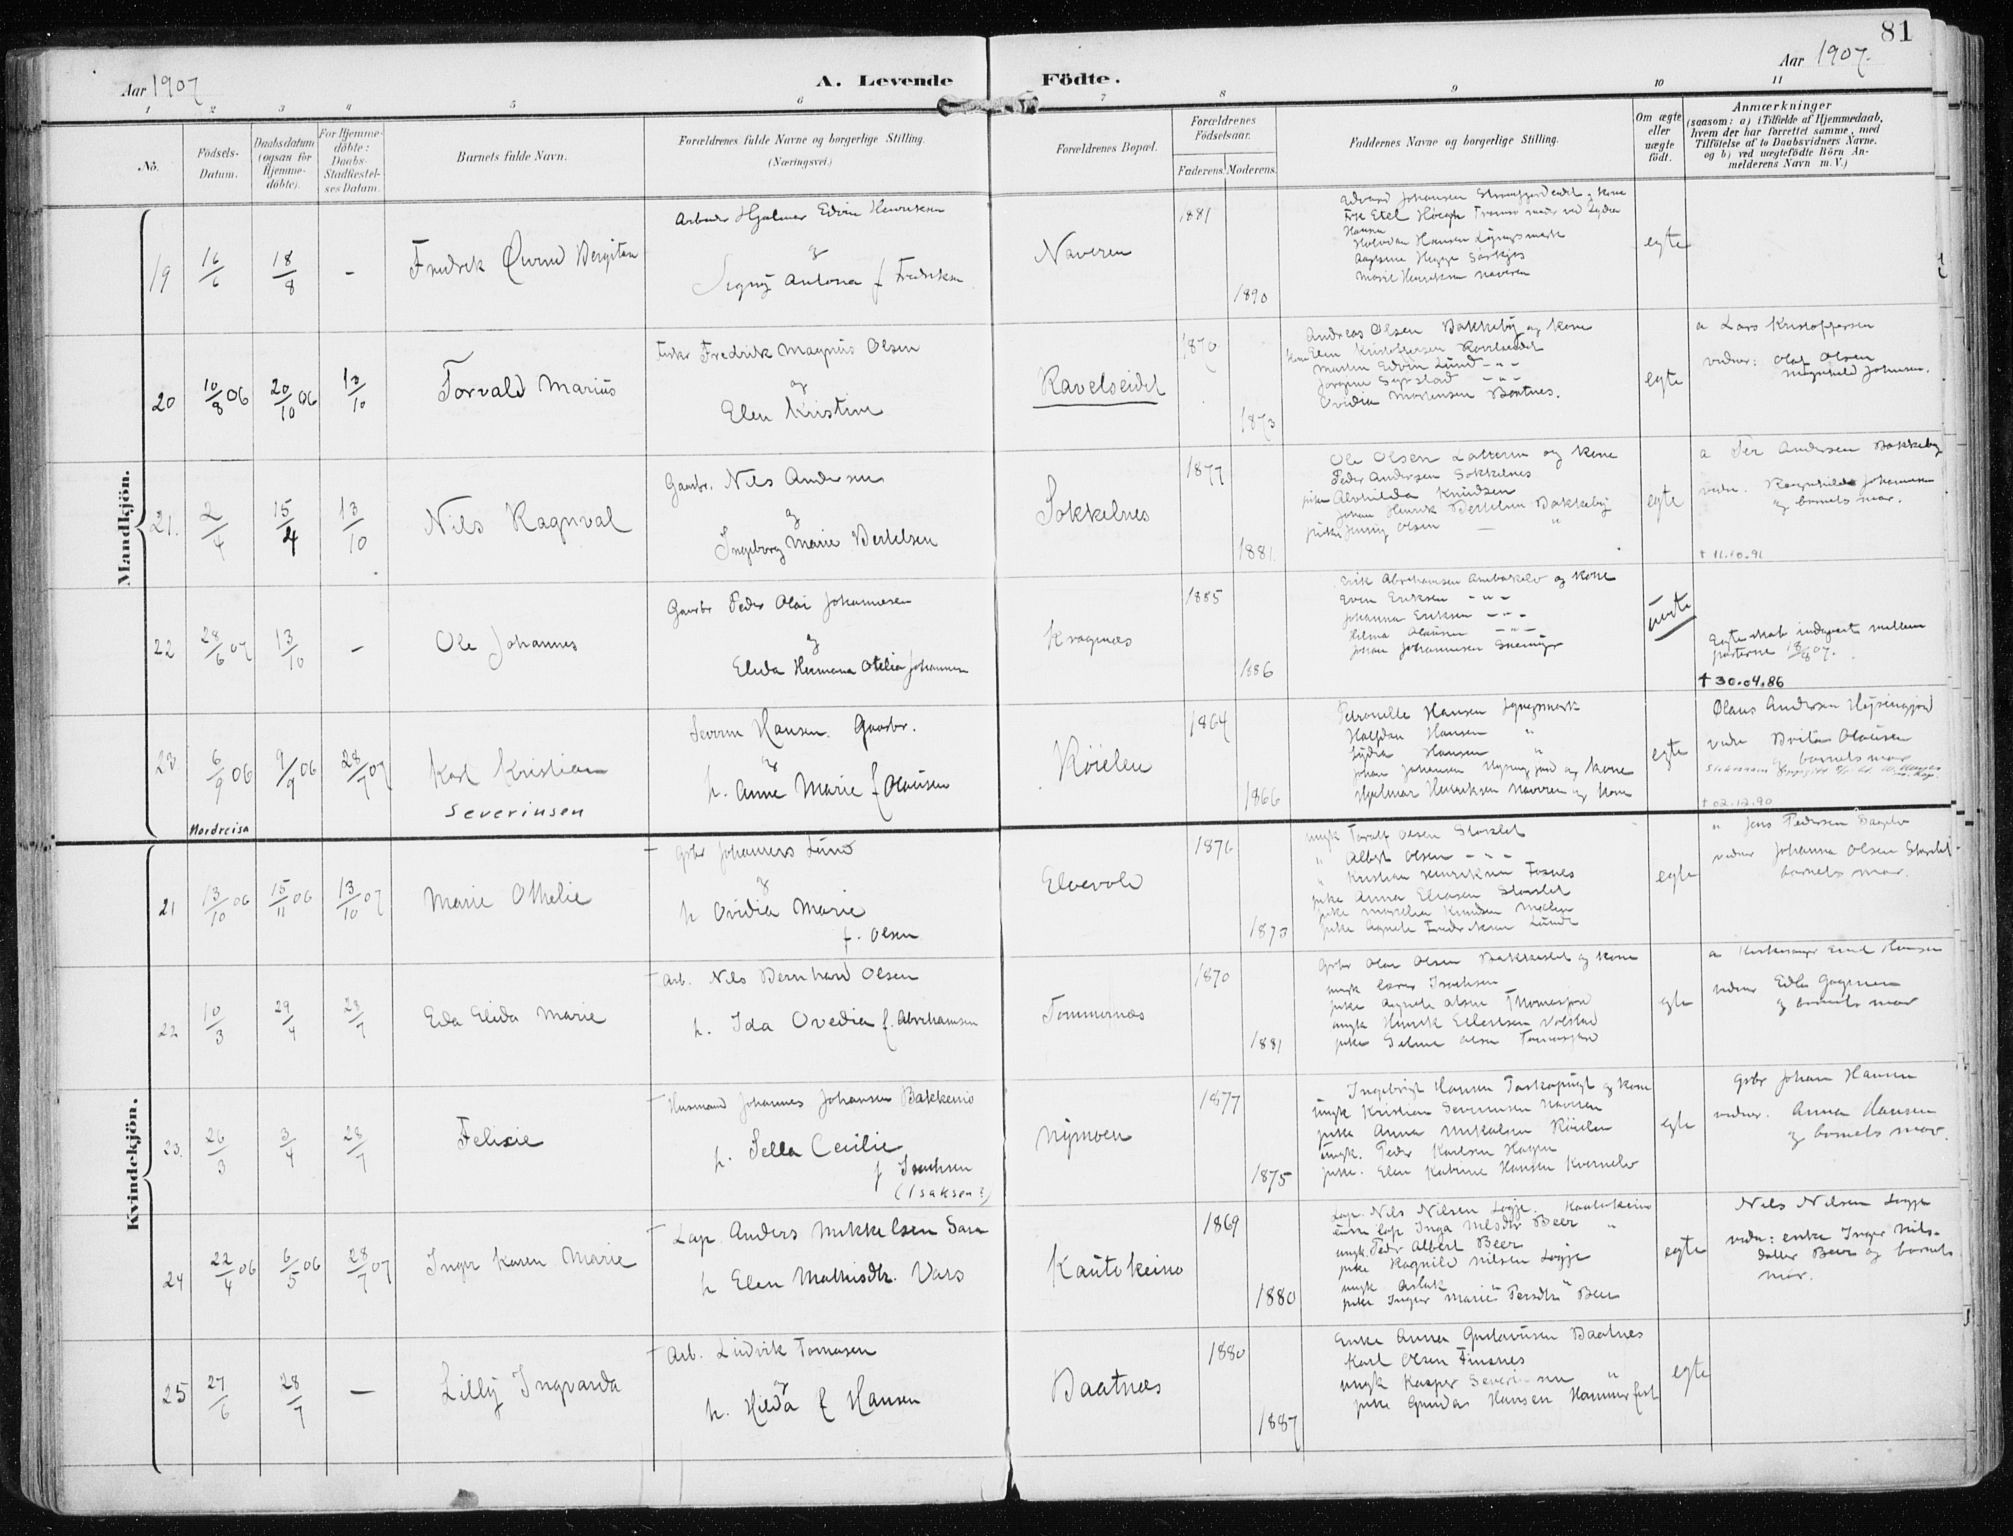 81
Aar 1907
A. Levende Födte.
Aar 1907.
1 2 3 4 5 6 7 8 9 10 11
No.
Födsels-
Datum.
Daabsdatum
(ogsaa for
Hjemme-
döbte).
For Hjemme-
döbte:
Daabs-
Stadfæstel-
ses Datum.
Barnets fulde Navn.
Forældrenes fulde Navne og borgerlige Stilling.
(Næringsvei.)
Forældrenes Bopæl.
Forældrenes
Födselsaar.
Faderens. Moderens.
Faddernes Navne og borgerlige Stilling.
Om ægte
eller
uægte
födt.
Anmærkninger
(saasom: a) i Tilfælde af Hjemmedaab,
hvem der har forrettet samme, med
Tilföielse af to Daabsvidners Navne,
og b) ved uægtefödte Börn An-
melderens Navn m. V.)
Mandkjön.
19 16/6 18/8 – Fredrik
Arbeider Hjalmar Edvin Henriksen
og
Signy Antona f Fredriksen
Naveren
1881
1890
Hansen
Marie Henriksen Naveren
egte
20 10/8 06 20/10 06 13/10 Torvald Marius
Fisker Fredrik Magnus Olsen
og
Elen Kristine
Ravelseidet
1870
1873
Andreas Olsen Bakkeby og kone
Elen Kristoffersen Ravelseidet
Martin Edvin Lund – " –
Ovidia Mortensen Baatnes.
egte
a Lars Kristoffersen
vidner: Olaf Olsen
Magnhild Johansen.
21. 2/4 15/4 13/10 Nils Ragnval
Gaarbr. Nils Andersen
og
Ingeborg Marie Bertelsen
Sokkelnes
1877
1881.
Ole Olsen og kone
Peder Andersen Sokkelnes
pike Alvhilda Knudsen
Johan Henrik Bertelsen Bakkeby
pike Jenny Olsen — "
egte
a Per Andersen Bakkeby
vidn. Ragnhilda Johannesen
og barnets mor.
† 11.10.91
22 28/6 07 13/10 – Ole Johannes
Gaarbr Peder Olai Johannesen
og
Elida Hermana Otelia Johannesen
Kragnæs
1885
1886
Erik Abrahamsen og kone
Even Eriksen – " –
Johanna Eriksen – " –
Hilma Olausen – " –
Johan Johannesen
uegte
Egteskab indgaaet mellem
parterne 18/8 07.
† 30.04.86
23 6/9 06 9/9 06 28/7 07 Karl Kristian
Severinsen
Severin Hansen. Gaarbr.
og
h. Anne Marie f Olausen
Röielen
1864
1866
Petronelle Hansen Lyngsmark
Halfdan Hansen "
Lydia Hansen "
Johan Johansen og kone
Hjalmar Henriksen Naveren og kone
egte
Olaus Andersen
vidn Brita Olausen
og barnets mor
† 02.12.90
Nordreisa
Kvindekjön.
21 13/10 06 15/11 06 13/10 07 Marie Othelie
Gbr Johannes Lund
og
h Ovidia Marie
f. Olsen
Elvevold
1876
1873
ungk Toralf Olsen Storslet
" Albert Olsen – " –
" Kristian Henriksen
pike Anna Eliasen Storslet
pike Knudsen
pike Agnete Fredriksen Lunde
egte
" Jens Pedersen
vidner Johanna Olsen Storslet
barnets mor.
22 10/3 29/4 23/7 Eda Elida Marie
Arb. Nils Bernhard Olsen
h. Ida Ovedia f. Abrahamsen
Tømmernæs
1870
1881
Gbr Olai Olsen og kone
ungk Isachsen
pike Agnete Olsen
ungk Henrik
pike Selma Olsen
egte
a Kirkesanger Emil Hansen
vidner
og barnets mor
23. 26/3 3/4 28/7 Felixie
Husmand Johannes Johansen Bakkemo
h. Sella Cecilie
f Isachsen
(Isaksen?)
Nymoen
1877
1875
Ingebrigt Hansen og kone
ungk Kristian Severinsen Naveren
pike Anna Mikalsen Röielen
ungk. Peder Karlsen
pike. Elen Katrine Hansen Kvernelv
egte
Gbr Johan Hansen
vidner. Anna Hansen
og barnets mor.
24 22/4 06 6/5 06 28/7 07 Inger Karen Marie
Lap. Anders Mikkelsen Sara
h Elen Mathisdtr. Vars
Kautokeino
1869
1880
Lap. Nils Nilsen Logje. Kautokeino
enke Lap Inga Nilsdtr Beer "
ungk. Peder Albert Beer
pike Ragnild Nilsen Logje
ungk Aslak " "
pike Inger Marie Persdtr Beer
egte
Nils Nilsen Logje
vidn: enke Inger Nils-
datter Beer og barnets
mor.
25 27/6 28/7 – Lilly Ingvarda
Arb. Ludvik Tomasen
og
h. Hilda f Hansen
Baatnæs
1880
1887
Enke Anna Gustavsen Baatnes
Karl Olsen Finsnes
ungk Kasper Severinsen "
pike Gunda Hansen Hammerfest
egte